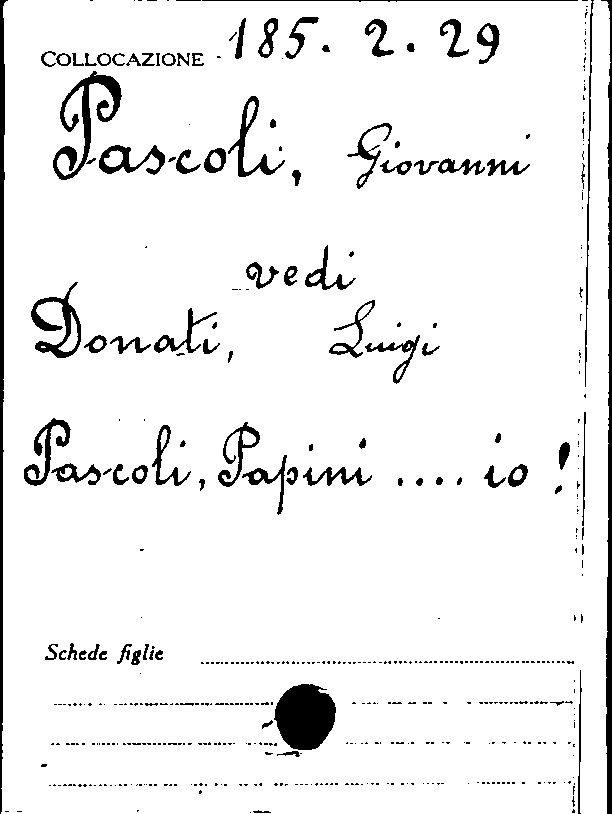 COLLOCAZIONE 185. 2. 29
Pascoli, Giovanni
vedi
Donati, Luigi
Pascoli, Papini .... io !
Schede figlie